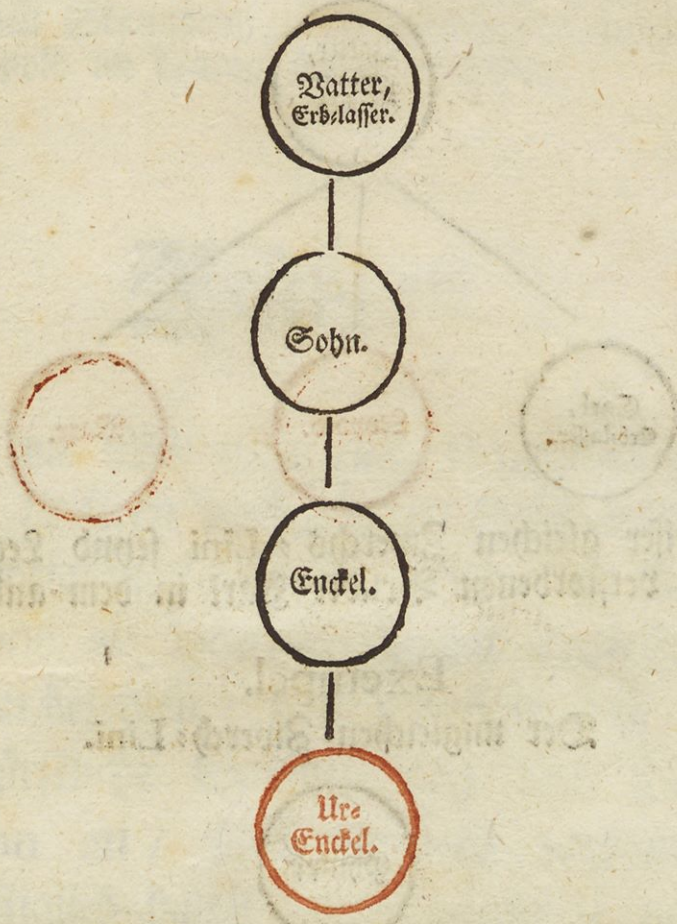 Vatter,
Erb-lasser.
Sohn.
Enckel.
Ur-
Enckel.